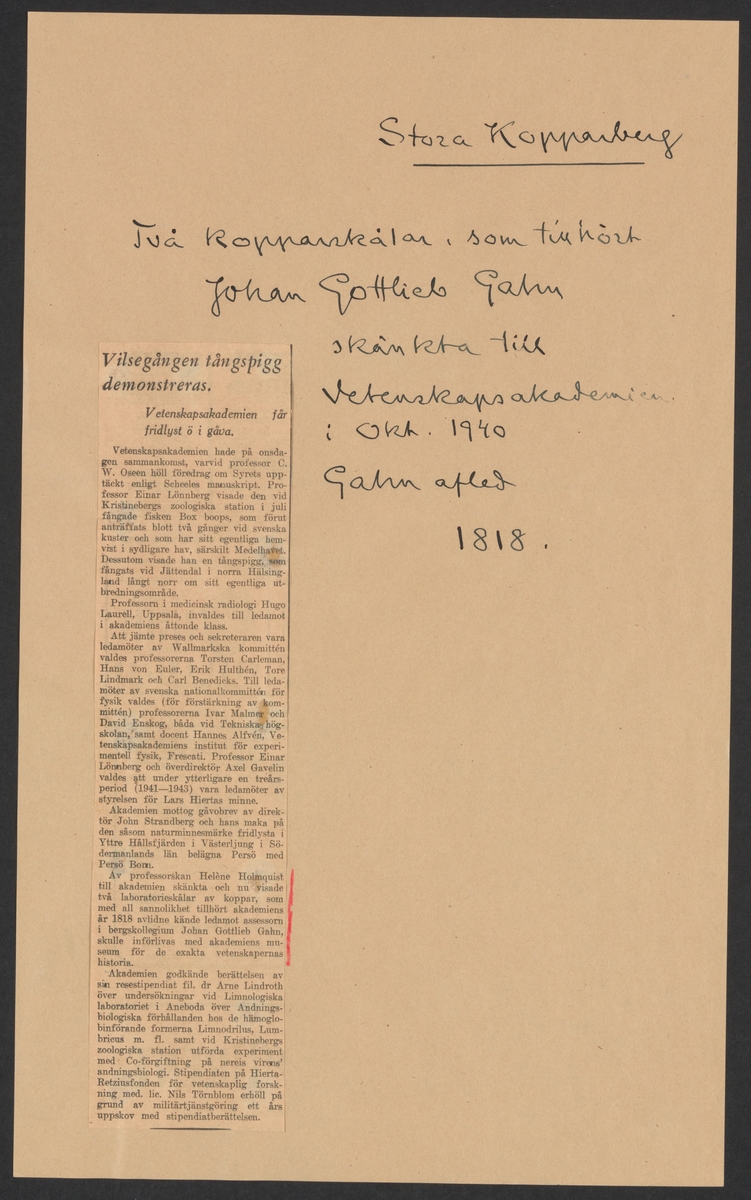 Stora Kopparberg
Två kopparskålar, som tillhört
Johan Gottlieb Gahn
skänkta till
Vetenskapsakademien
i Okt. 1940
Gahn afled
1818.
Vilsegången tångspigg
demonstreras.
Vetenskapsakademien får
fridlyst ö i gåva.
Vetenskapsakademien hade på onsda-
gen sammankomst, varvid professor C.
W. Oseen höll föredrag om Syrets upp-
täckt enligt Scheeles manuskript. Pro-
fessor Einar Lönnberg visade den vid
Kristinebergs zoologiska station i juli
fångade fisken Box boops, som förut
anträffats blott två gånger vid svenska
kuster och som har sitt egentliga hem-
vist i sydligare hav, särskilt Medelhavet.
Dessutom visade han en tångspigg, som
fångats vid Jättendal i norra Hälsing-
land långt norr om sitt egentliga ut-
bredningsområde.
Professorn i medicinsk radiologi Hugo
Laurell, Uppsala, invaldes till ledamot
i akademiens åttonde klass.
Att jämte preses och sekreteraren vara
ledamöter av Wallmarkska kommittén
valdes professorerna Torsten Carleman,
Hans von Euler, Erik Hulthén, Tore
Lindmark och Carl Benedicks. Till leda-
möter av svenska nationalkommittén för
fysik valdes (för förstärkning av kom-
mittén) professorerna Ivar Malmer och
David Enskog, båda vid Tekniska hög-
skolan, samt docent Hannes Alfvén, Ve-
tenskapsakademiens institut för experi-
mentell fysik, Frescati. Professor Einar
Lönnberg och överdirektör Axel Gavelin
valdes att under ytterligare en treårs-
period (1941—1943) vara ledamöter av
styrelsen för Lars Hiertas minne.
Akademien mottog gåvobrev av direk-
tör John Strandberg och hans maka på
den såsom naturminnesmärke fridlysta i
Yttre Hållsfjärden i Västerljung i Sö-
dermanlands län belägna Persö med
Persö Bonn.
Av professorskan Helène Holmquist
till akademien skänkta och nu visade
två laboratorieskålar av koppar, som
med all sannolikhet tillhört akademiens
år 1818 avlidne kände ledamot assessorn
i bergskollegium Johan Gottlieb Gahn,
skulle införlivas med akademiens mu-
seum för de exakta vetenskapernas
historia.
Akademien godkände berättelsen av
sin resestipendiat fil. dr Arne Lindroth
över undersökningar vid Limnologiska
laboratoriet i Aneboda över Andnings-
biologiska förhållanden hos de hämoglo-
binförande formerna Limnodrilus, Lum-
bricus m. fl. samt vid Kristinebergs
zoologiska station utförda experiment
med Co-förgiftning på nereis virens'
andningsbiologi. Stipendiaten på Hierta-
Retziusfonden för vetenskaplig forsk-
ning med. lic. Nils Törnblom erhöll på
grund av militärtjänstgöring ett års
uppskov med stipendiatberättelsen.